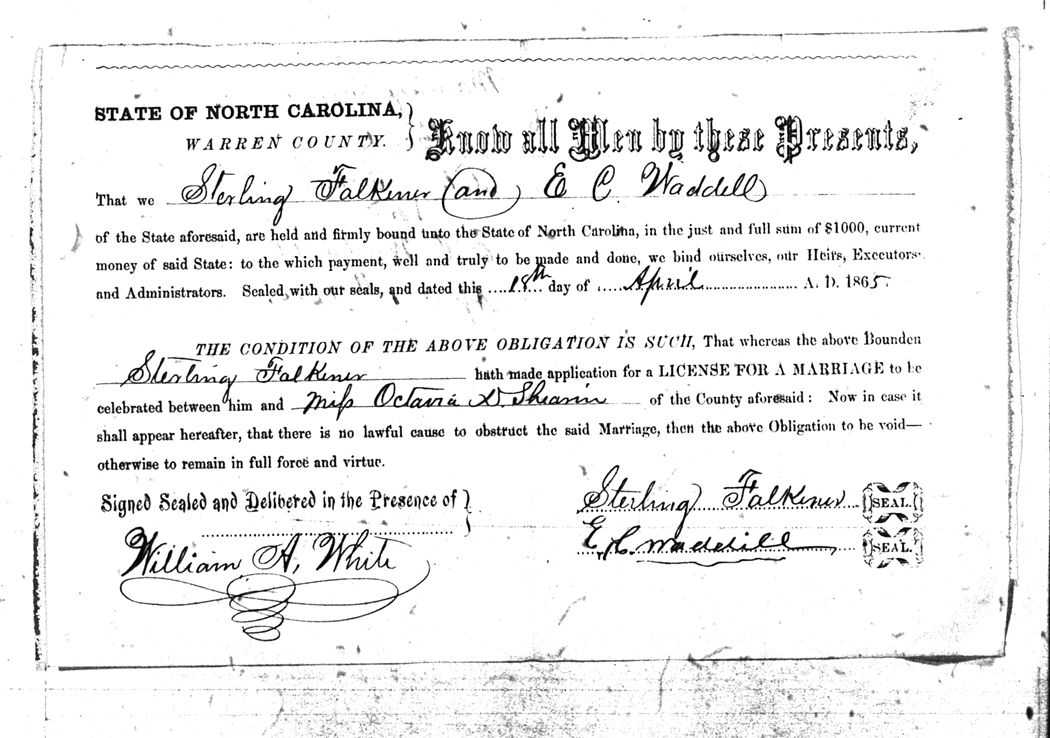 STATE OF NORTH CAROLINA,
WARREN COUNTY.
Know all Men by these Presents,
That we Sterling Falkener (and) E C. Waddell
of the State aforesaid, are held and firmly bound unto the State of North Carolina, in the just and full sum of $1000, current
money of said State: to the which payment, well and truly to be made and done, we bind ourselves, our Heirs, Executors
and Administrators. Sealed with our seals, and dated this 18th day of April A. D. 1865.
THE CONDITION OF THE ABOVE OBLIGATION IS SUCH, That whereas the above Bounden
Sterling Falkener hath made application for a LICENSE FOR A MARRIAGE to be
celebrated between him and Miss Octavia D. Shearin of the County aforesaid: Now in case it
shall appear hereafter, that there is no lawful cause to obstruct the said Marriage, then the above Obligation to be void—
otherwise to remain in full force and virtue.
Signed Sealed and Delivered in the Presence of
Sterling Falkener SEAL.
E, C. Waddill SEAL.
William A, White